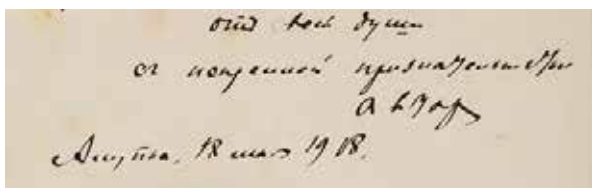 отъ всей души
съ искренной признательностью
Авторъ
Алупка, 18 мая 1918.